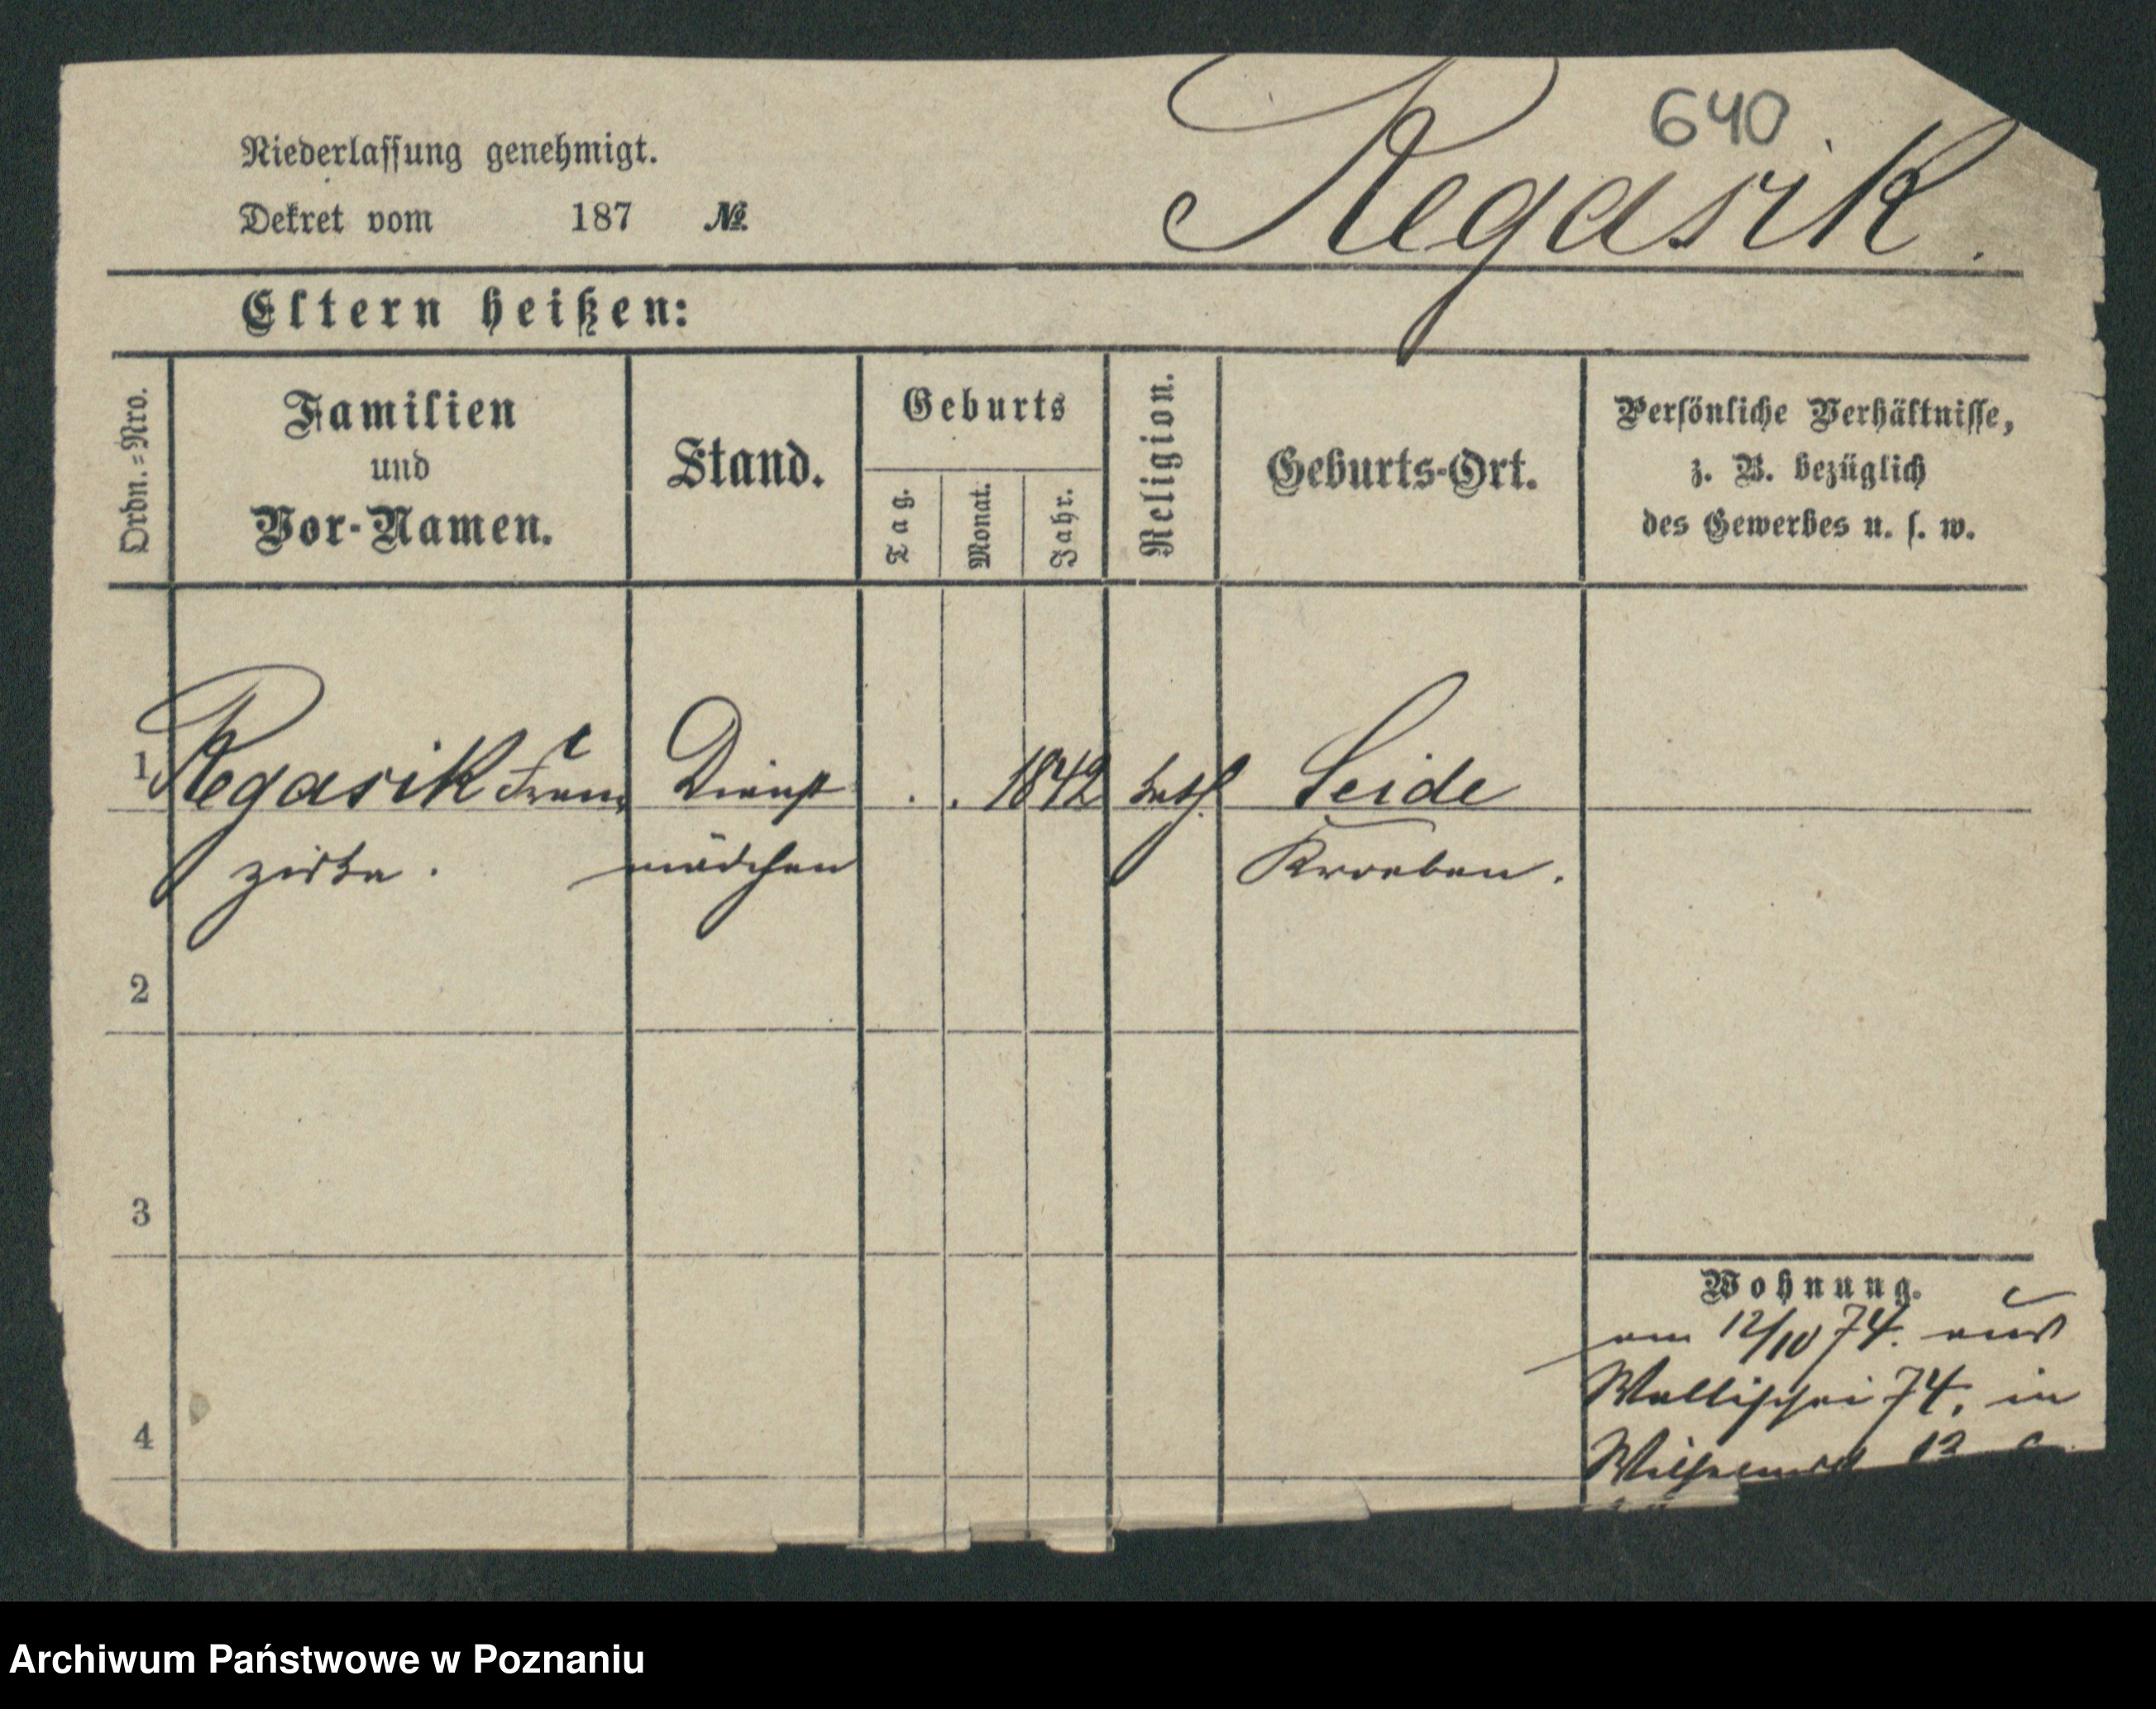 640
Niederlassung genehmigt.
Dekret vom 187 №
Regasik.
Eltern heißen:
Ordn.=Nro.
Familien
und
Vor-Namen.
Stand.
Geburts
Tag.
Monat.
Jahr.
Religion.
Geburts-Ort.
Persönliche Verhältnisse,
z. B. bezüglich
des Gewerbes u. s. w.
1 Regasik Fran Dienst . . 1842 kath. Seide
ziska. mädchen Kroeben.
2
3
4
Wohnung.
am 12/10 74. aus
Wallischei 74, in
13
Archiwum Państwowe w Poznaniu